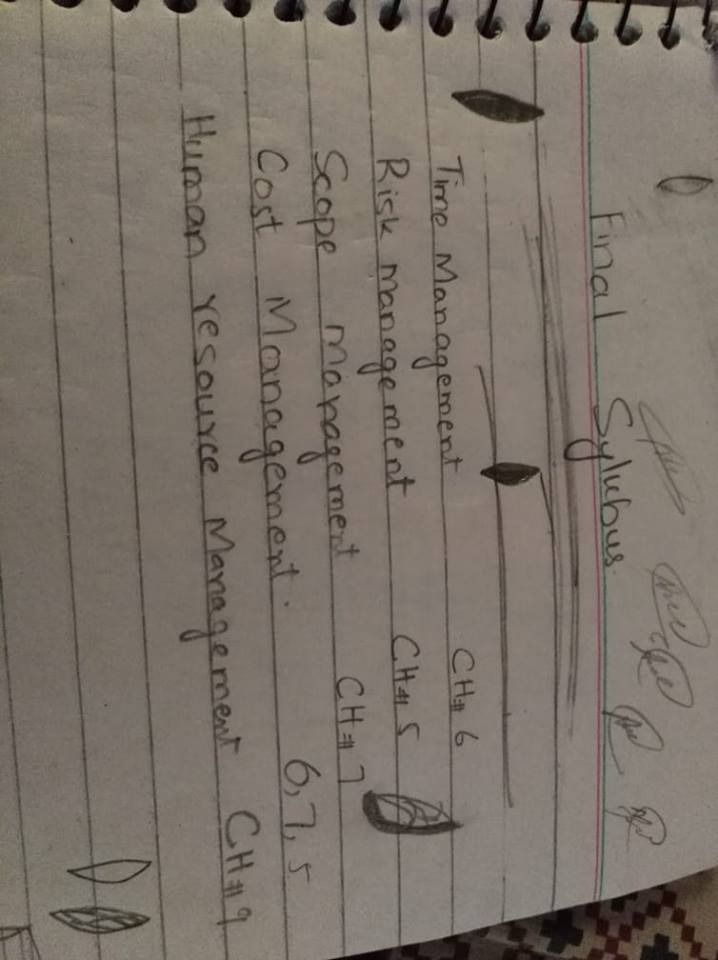 Final Sylubus.
Time Management CH# 6
Risk management CH# 5
Scope management CH# 7
Cost Management. 6, 7, 5
Human resource Management CH# 9